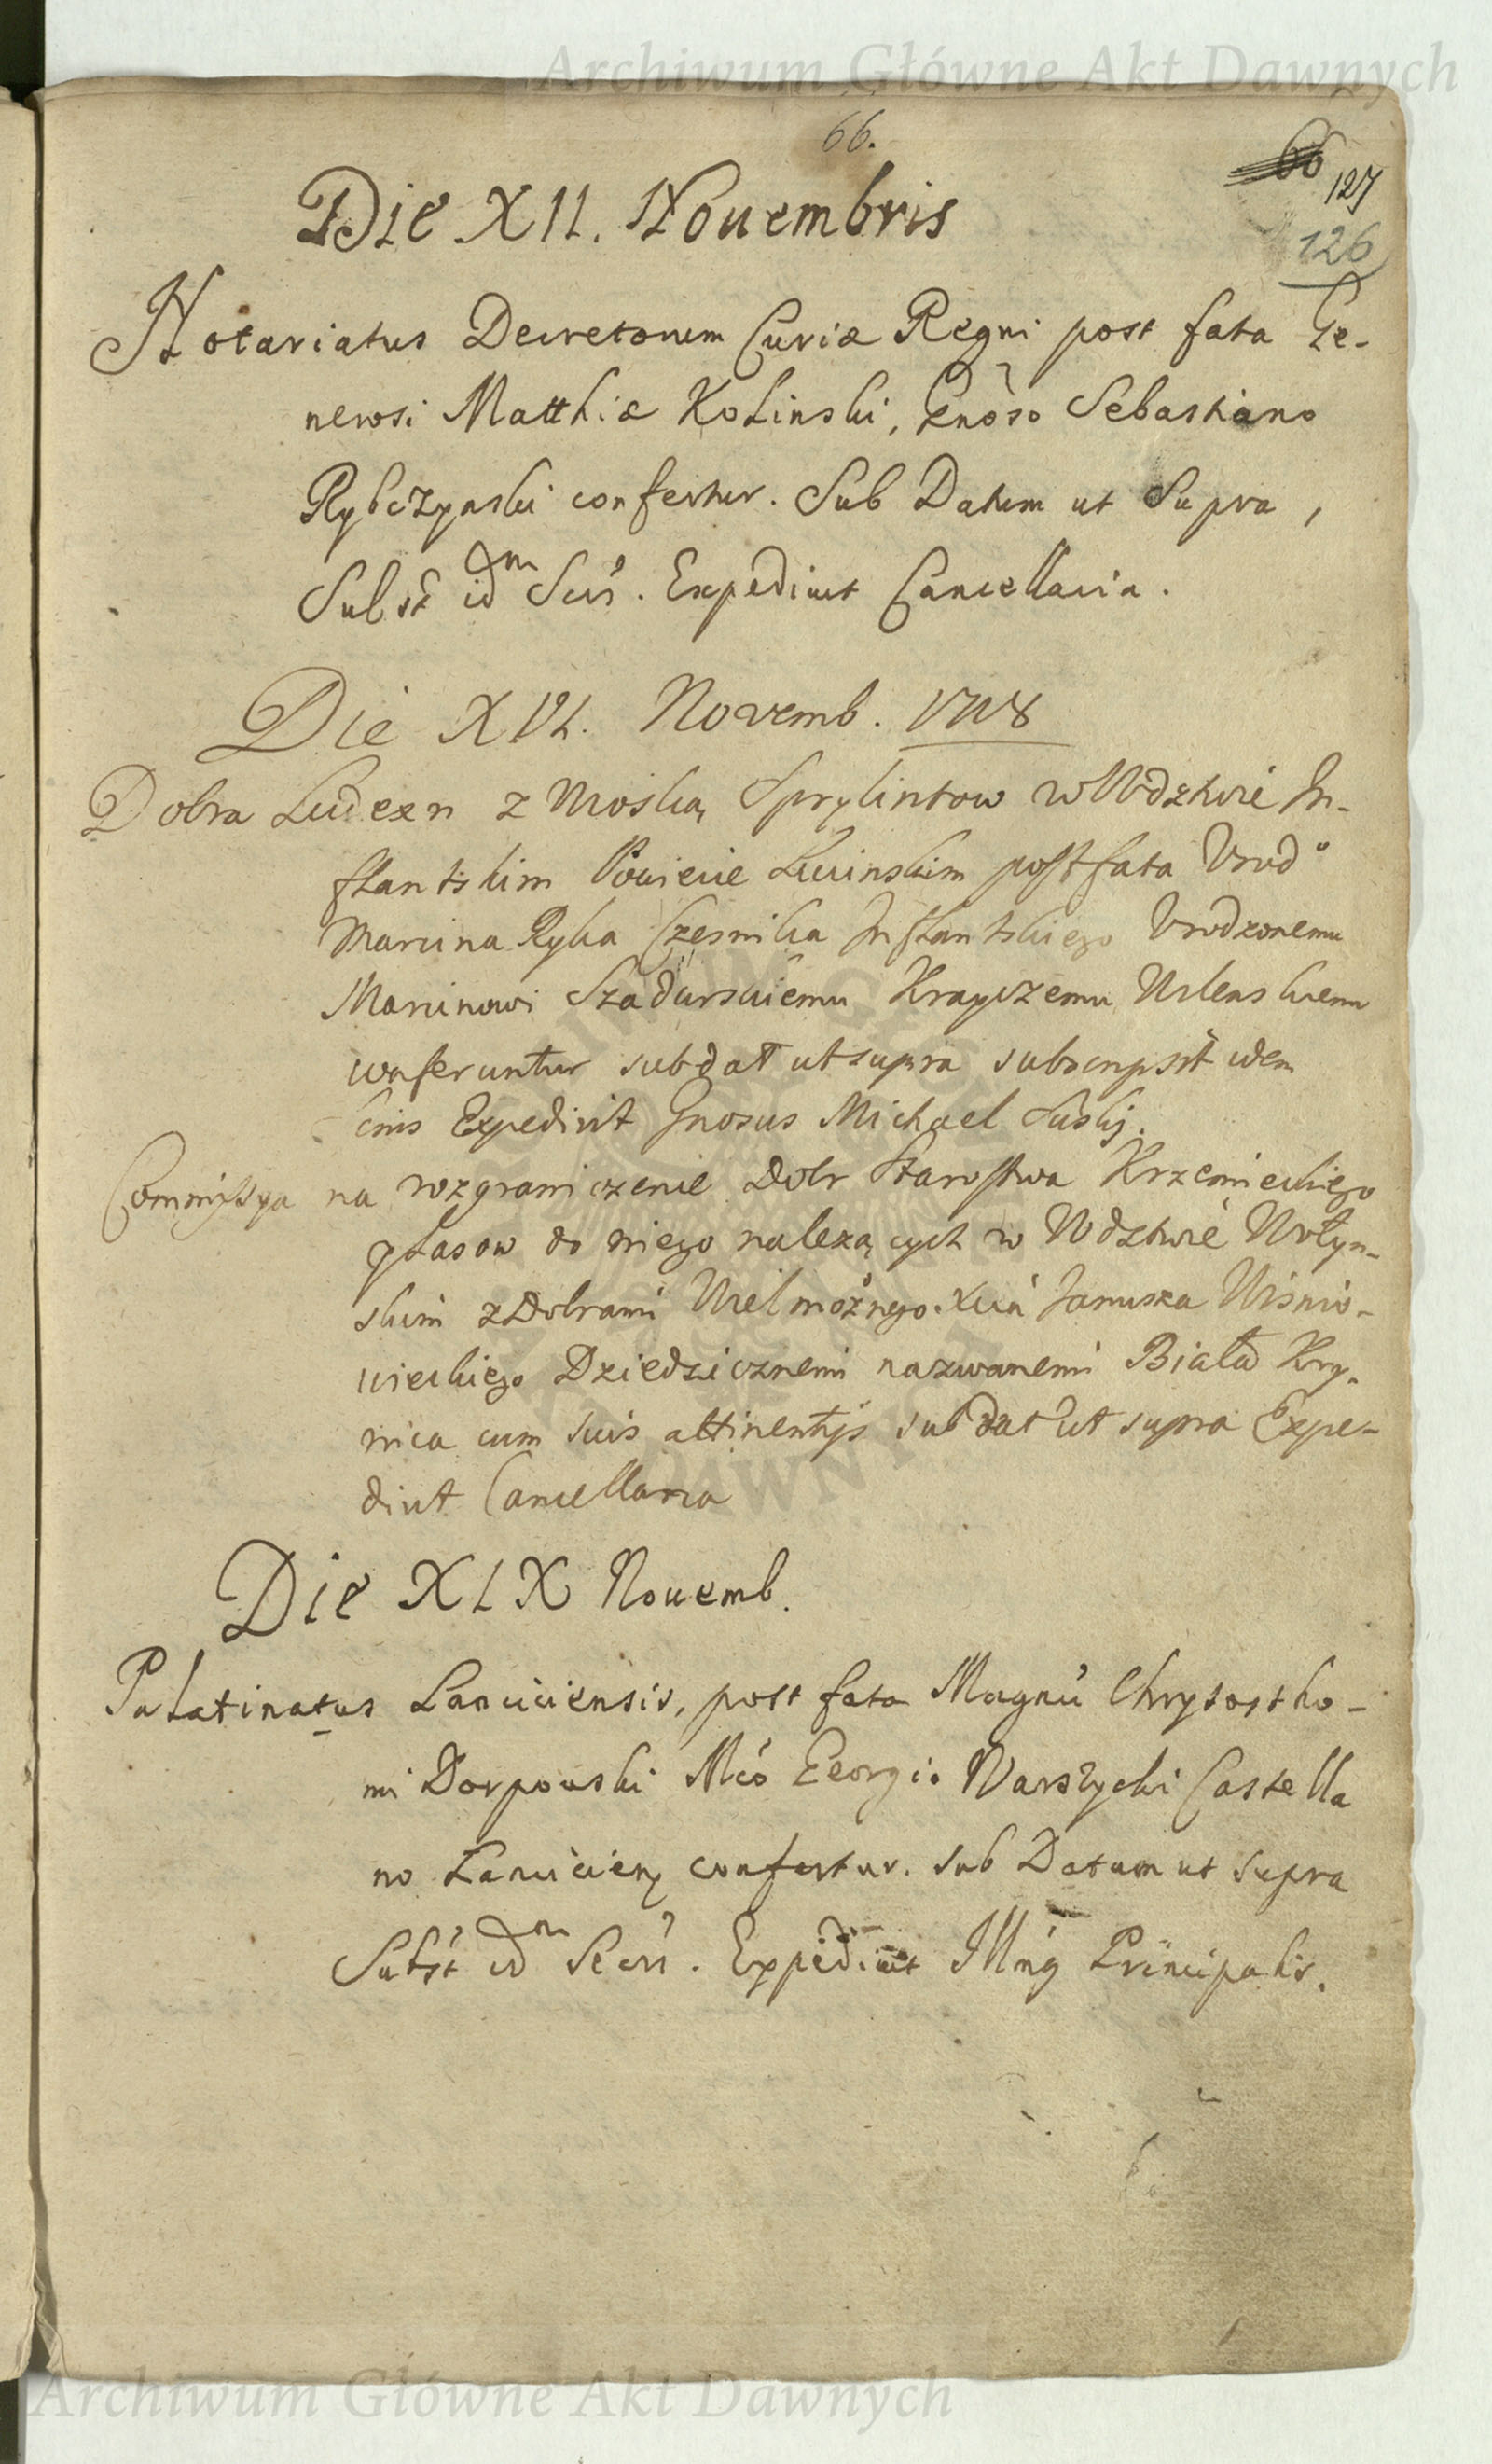 Archiwum Główne Akt Dawnych
66.
127
126
Die XII. Nouembris
Notariatus Decretorum Curiæ Regni post fata Ge-
nerosi Matthiæ Kolinski, Gnõso Sebastiano
Rybczynski confertur. Sub Datum ut Supra,
Subst id͠m Scrs. Expediuit Cancellaria.
Die XVI. Novemb. 1718
Dobra Ludexn z Wioską Sprylintow w Wdztwie In-
flantskim Powiecie Lucinskim post fata Urod°
Marcina Ryka Czesnika Inflantskiego Vrodzonemu
Marcinowi Szadurskiemu Krayczemu Wilenskiemu
conferuntur sub dat ut supra subscripsit idem
Expedivit Gnosus Michael Suski.
Commissya na rozgraniczenie Dobr Starostwa Krzemieckiego
ylasow do niego należących w Wdztwie Wołyn-
skim z Dobrami Wielmożnego Xcia Janusza Wisnio-
wieckiego Dziedzicznemi nazwanemi Biała Kry-
nica cum suis attinentijs sub dat ut supra Expe-
divit Cancellaria
Die XIX Nouemb.
Palatinatus Lanciciensis, post fata Magnci Chrysostho-
mi Dorpowski Mco Georgio Warszycki Castella
no Lancicien confertur. Sub Datum ut supra
Subst id͠m Secrs. Expediuit Illmg Principalis.
Archiwum Główne Akt Dawnych